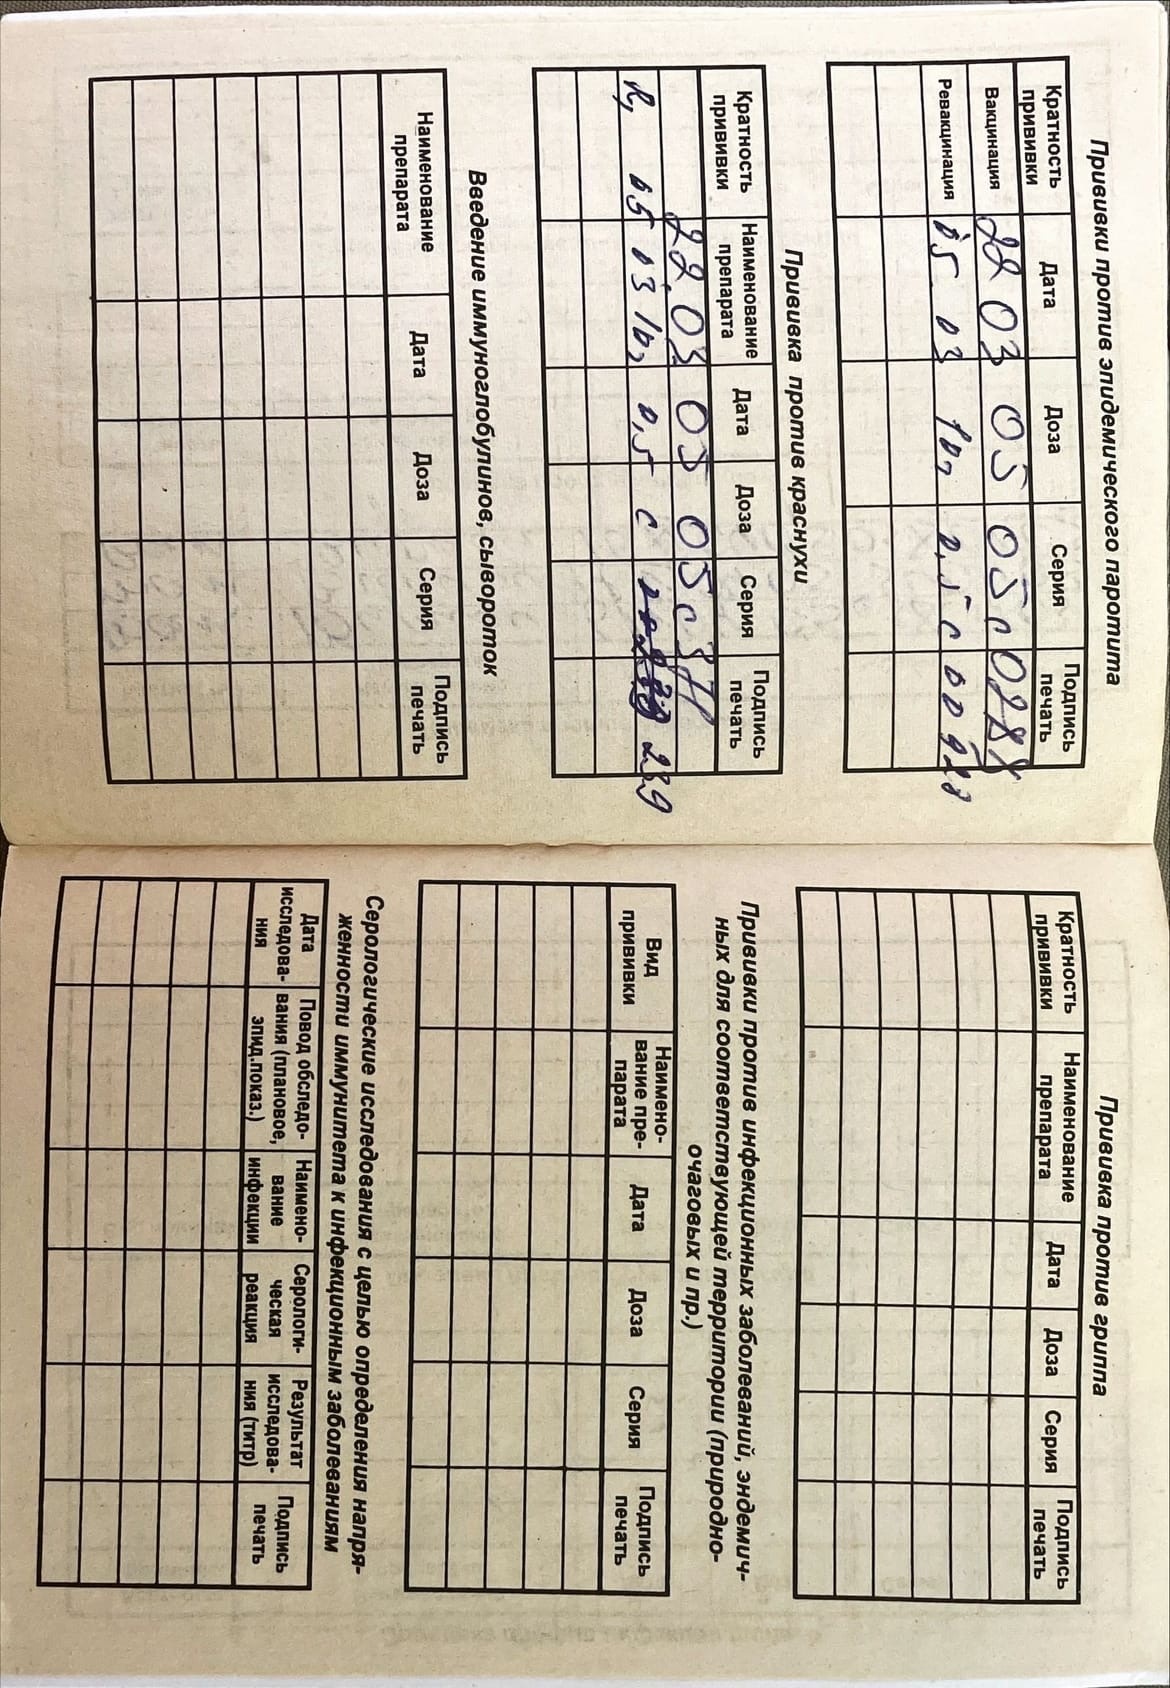 Прививки против эпидемического паротита
Кратность прививки Дата Доза Серия Подпись печать
Вакцинация 22 03 05 05 с 0288
Ревакцинация 05 03 0,5 с
Прививка против краснухи
Кратность прививки Наименование препарата Дата Доза Серия Подпись печать
22.03 05 05 с
05 03 0,5 с 239
Введение иммуноглобулинов, сывороток
Наименование препарата Дата Доза Серия Подпись печать
Прививка против гриппа
Кратность прививки Наименование препарата Дата Доза Серия Подпись печать
Прививки против инфекционных заболеваний, эндемич-
ных для соответствующей территории (природно-
очаговых и пр.)
Вид прививки Наимено- вание пре- парата Дата Доза Серия Подпись печать
Серологические исследования с целью определения напря-
женности иммунитета к инфекционным заболеваниям
Дата исследова- ния Повод обследо- вания (плановое, эпид.показ.) Наимено- вание инфекции Серологи- ческая реакция Результат исследова- ния (титр) Подпись печать